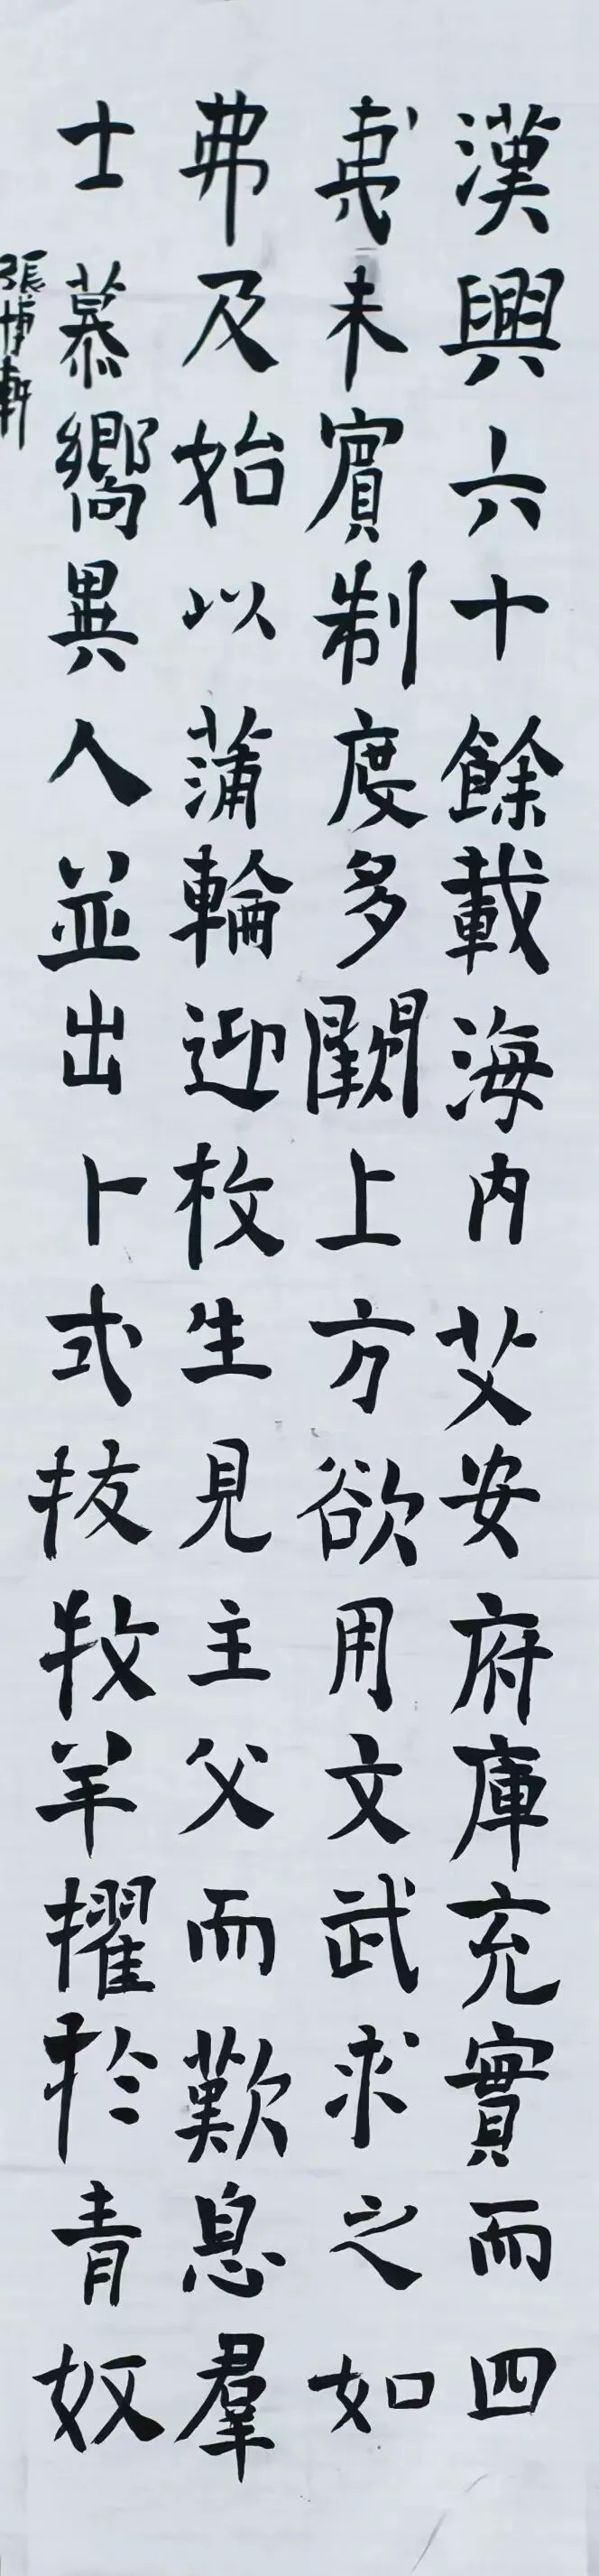 漢興六十餘載海內艾安府庫充實而四
夷未賓制度多闕上方欲用文武求之如
弗及始以蒲輪迎枚生見主父而歎息羣
士慕嚮異人並出卜式拔牧羊擢於青奴
張博軒